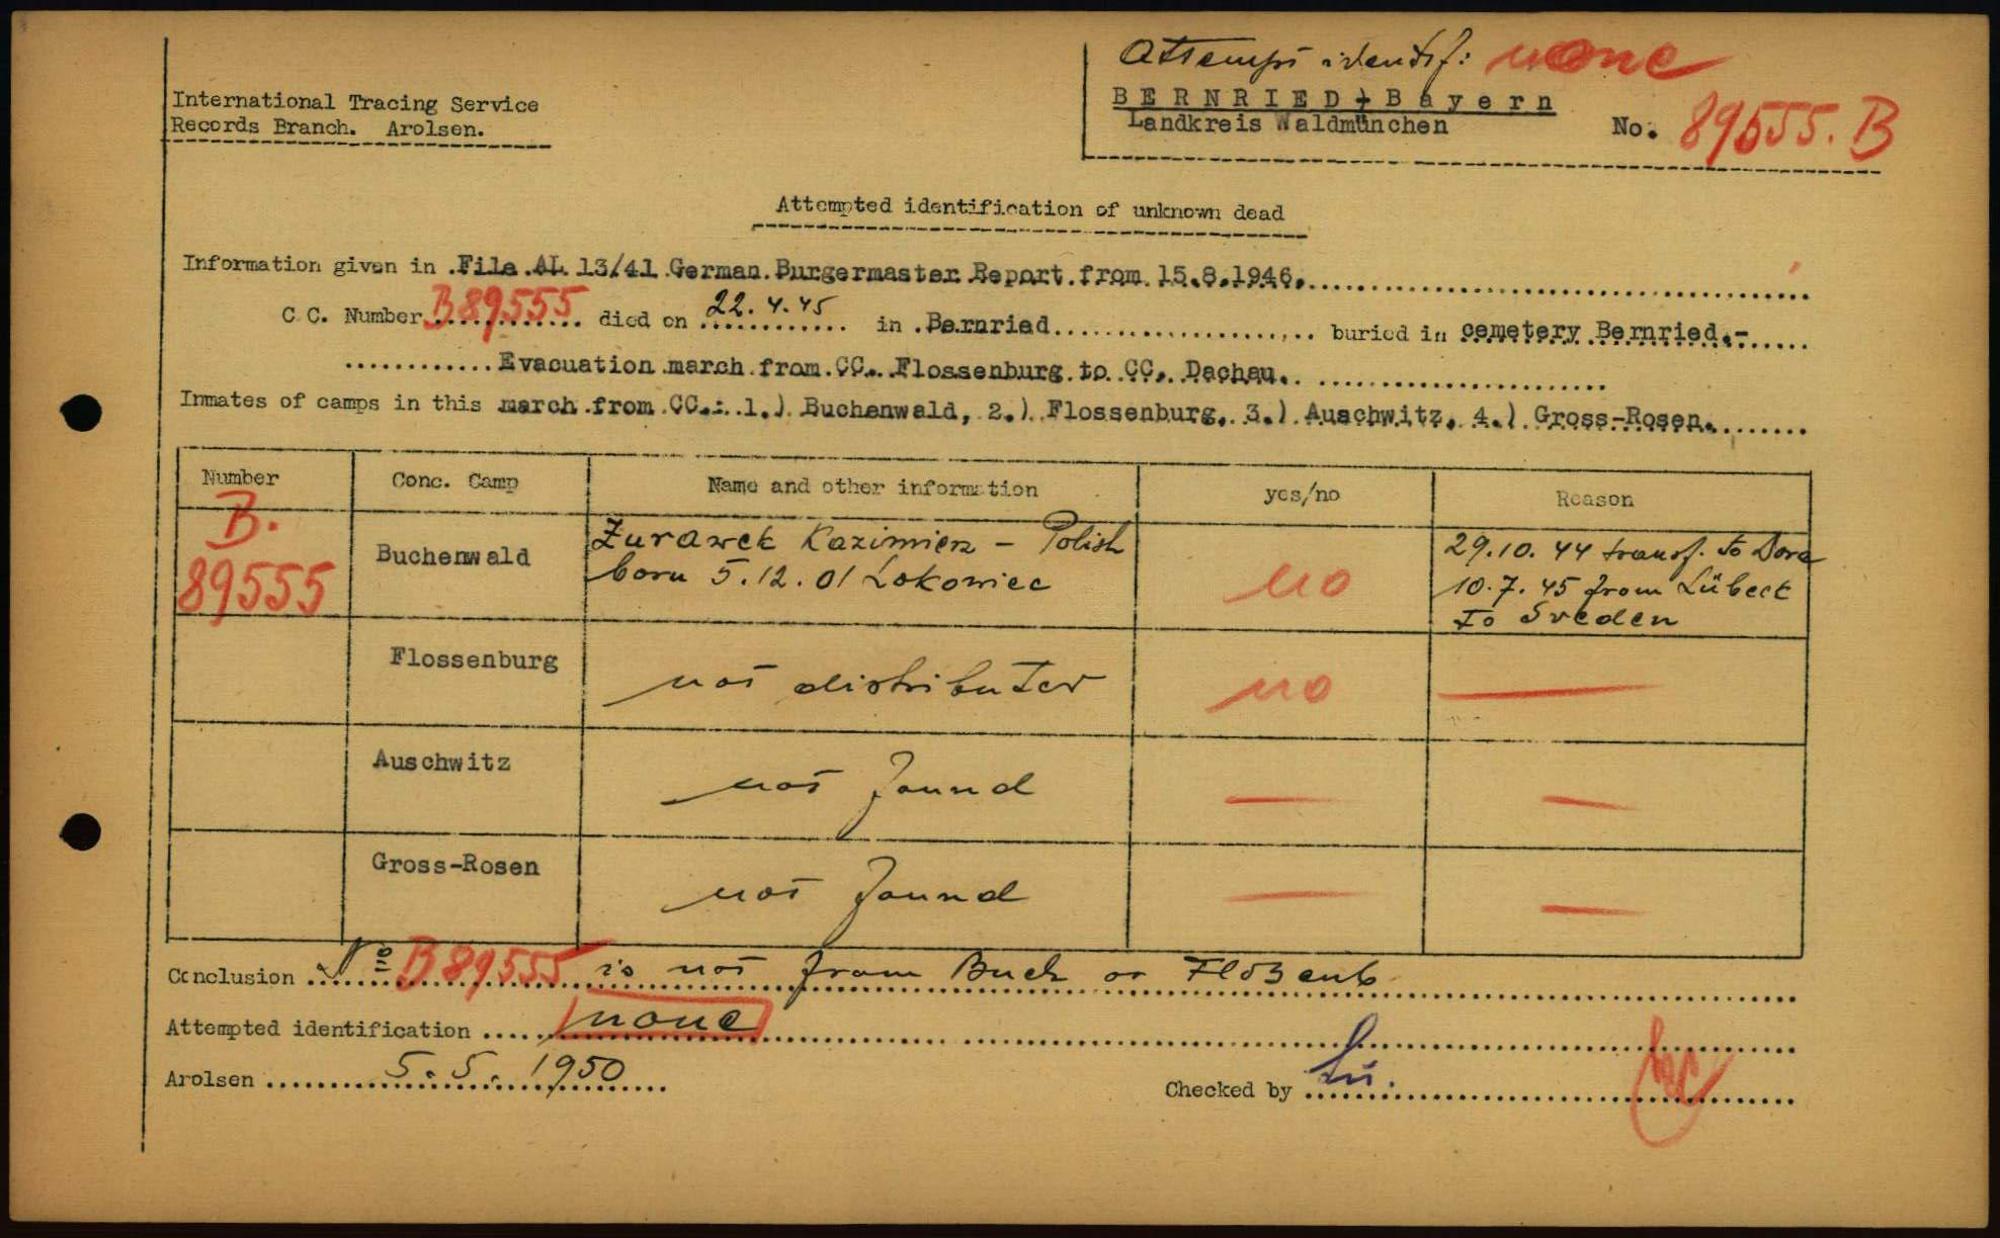 Attempt identif: none
International Tracing Service
Records Branch. Arolsen.
BERNRIED, Bayern
Landkreis Waldmünchen
No. 89555.B
Attempted identification of unknown dead
Information given in File AL 13/41 German Burgermaster Report from 15.8.1946.
C C. Number B89555 died on 22.4.45 in Bernried buried in cemetery Bernried.-
Evacuation march from CC. Flossenburg to CC. Dachau.
Inmates of camps in this march from CC.: 1.) Buchenwald, 2.) Flossenburg, 3.) Auschwitz, 4.) Gross-Rosen.
Number Conc. Camp Name and other information yes/no Reason
B. 89555 Buchenwald Żurawek Kazimierz - Polish
born 5.12.01 Lokowiec no
29.10.44 transf. to Dora
10.7.45 from Lübeck
to Sveden
Flossenburg not distributer no
Auschwitz not found —
Gross-Rosen not found —
Conclusion No B89555 is not from Buch or Floßenb
Attempted identification none
Arolsen 5.5.1950
Checked by Lü.